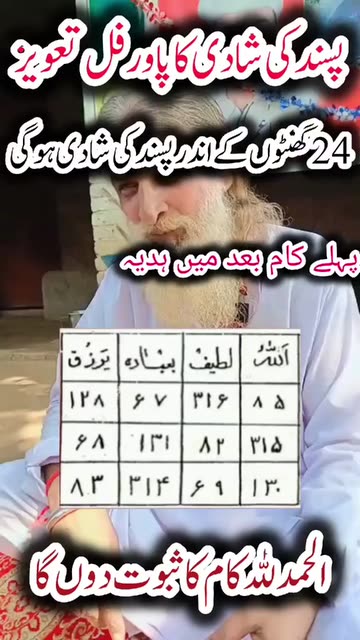 پسند کی شادی کا پاور فل تعویز
24 گھنٹوں کے اندر پسند کی شادی ہو گی
پہلے کام بعد میں ہدیہ
اَللّٰهُ لطیفٌ بعبادہ یَرْزُقُ
۸۵ ۳۱۶ ۶۷ ۱۲۸
۳۱۵ ۸۲ ۱۳۱ ۶۸
۱۳۰ ۶۹ ۳۱۴ ۸۳
الحمدللہ کام کا ثبوت دوں گا